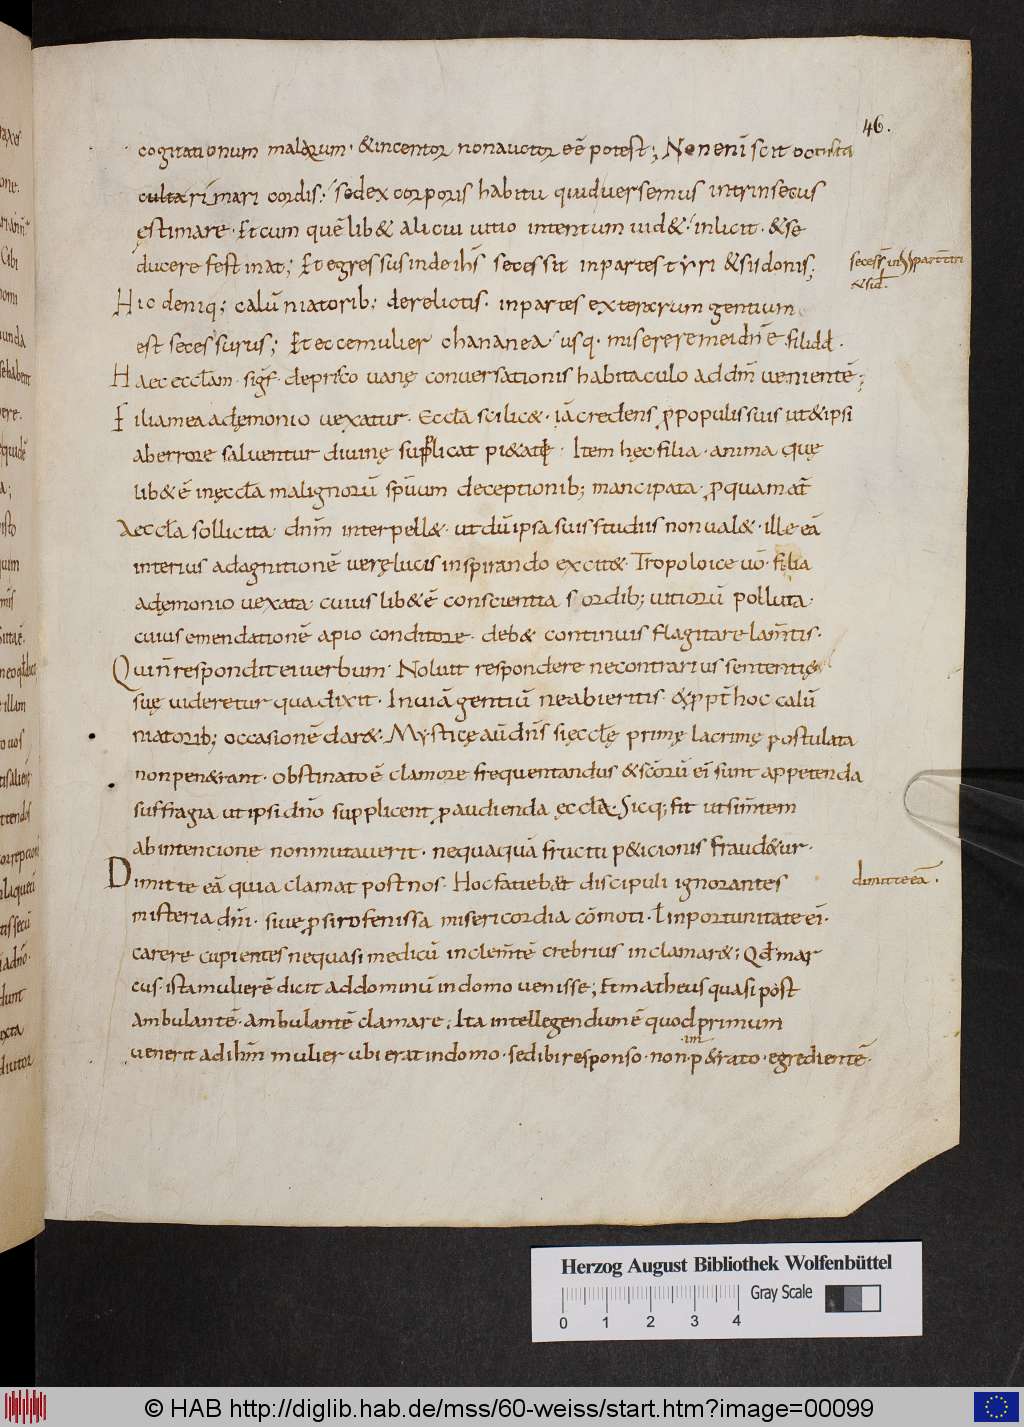 46.
cogitationum malarum · & incentor non auctor eē potest; Non enī scit occulta
culta rimari cordis; sed ex corporis habitu quid versemus intrinsecus
estimare · Et cum quē lib& alicui vitio intentum vid& · inlicit · & se
ducere festinat; Et egressus inde ihs̄ secessit in partes tyri & sidonis;
secess̄ in part̄ tiri
& sid̄.
Hic deniq; calūniatorib; derelictis · in partes exterarum gentium
est secessurus; Et ecce mulier chananea usq · miserere mei dn̄e fili dd̄ ·
Haec eccl̄am · sigf̄ · de prisco vanę conversationis habitaculo ad dm̄ venientē;
Filia mea a dęmonio vexatur · Eccl̄a scilic& · iā credens ꝓ populis suis ut & ipsi
ab errore salventur divinę supplicat pi&ati · Item hęc filia · anima quę
lib& ē in ęccl̄a malignorū sp̄uum deceptionib; mancipata · ꝓ qua mat̄
Aeccl̄a sollicita · dnm̄ interpell& · ut dū ipsa suis studiis non val& · ille eā
interius ad agnitionē verę lucis inspirando excit& · Tropoloice vō · filia
a dęmonio vexata · cuius lib& ē conscientia sordib; vitiorū polluta ·
cuius emendationē a pio conditore · deb& continuis flagitare lam̄tis ·
Qui n̄ respondit ei verbum · Noluit respondere ne contrarius sententię
suę videretur qua dixit · In viā gentiū ne abieritis · & ꝓpt̄ hoc calū
niatorib; occasionē dar& · Mysticę aū dn̄s si ęccl̄ę primę lacrimę postulata
non pen&rant · obstinato ē clamore frequentandus & sc̄orū ei sunt appetenda
suffragia ut ipsi dn̄o supplicent ꝓ audienda ęccl̄a · Sicq; fit ut si m̄tem
ab intencione non mutaverit · nequaquā fructu p&icionis fraud&ur ·
Dimitte eā quia clamat post nos · Hoc faciebat discipuli ignorantes
dimitte eā ·
misteria dn̄i · sive ꝓ sirofenissa misericordia cōmoti · ł inportunitate ei ·
carere cupientes ne quasi medicū inclem̄tē crebrius inclamar&; Qd̄ mar
cus · ista mulierē dicit ad dominū in domo venisse; Et matheus quasi post
ambulantē · ambulantē clamare; Ita intellegendum ē quod primum
venerit ad ihm̄ mulier ubi erat in domo · sed ibi responso · non · im p&rato · egredientē ·
Herzog August Bibliothek Wolfenbüttel
Gray Scale
0 1 2 3 4
© HAB http://diglib.hab.de/mss/60-weiss/start.htm?image=00099